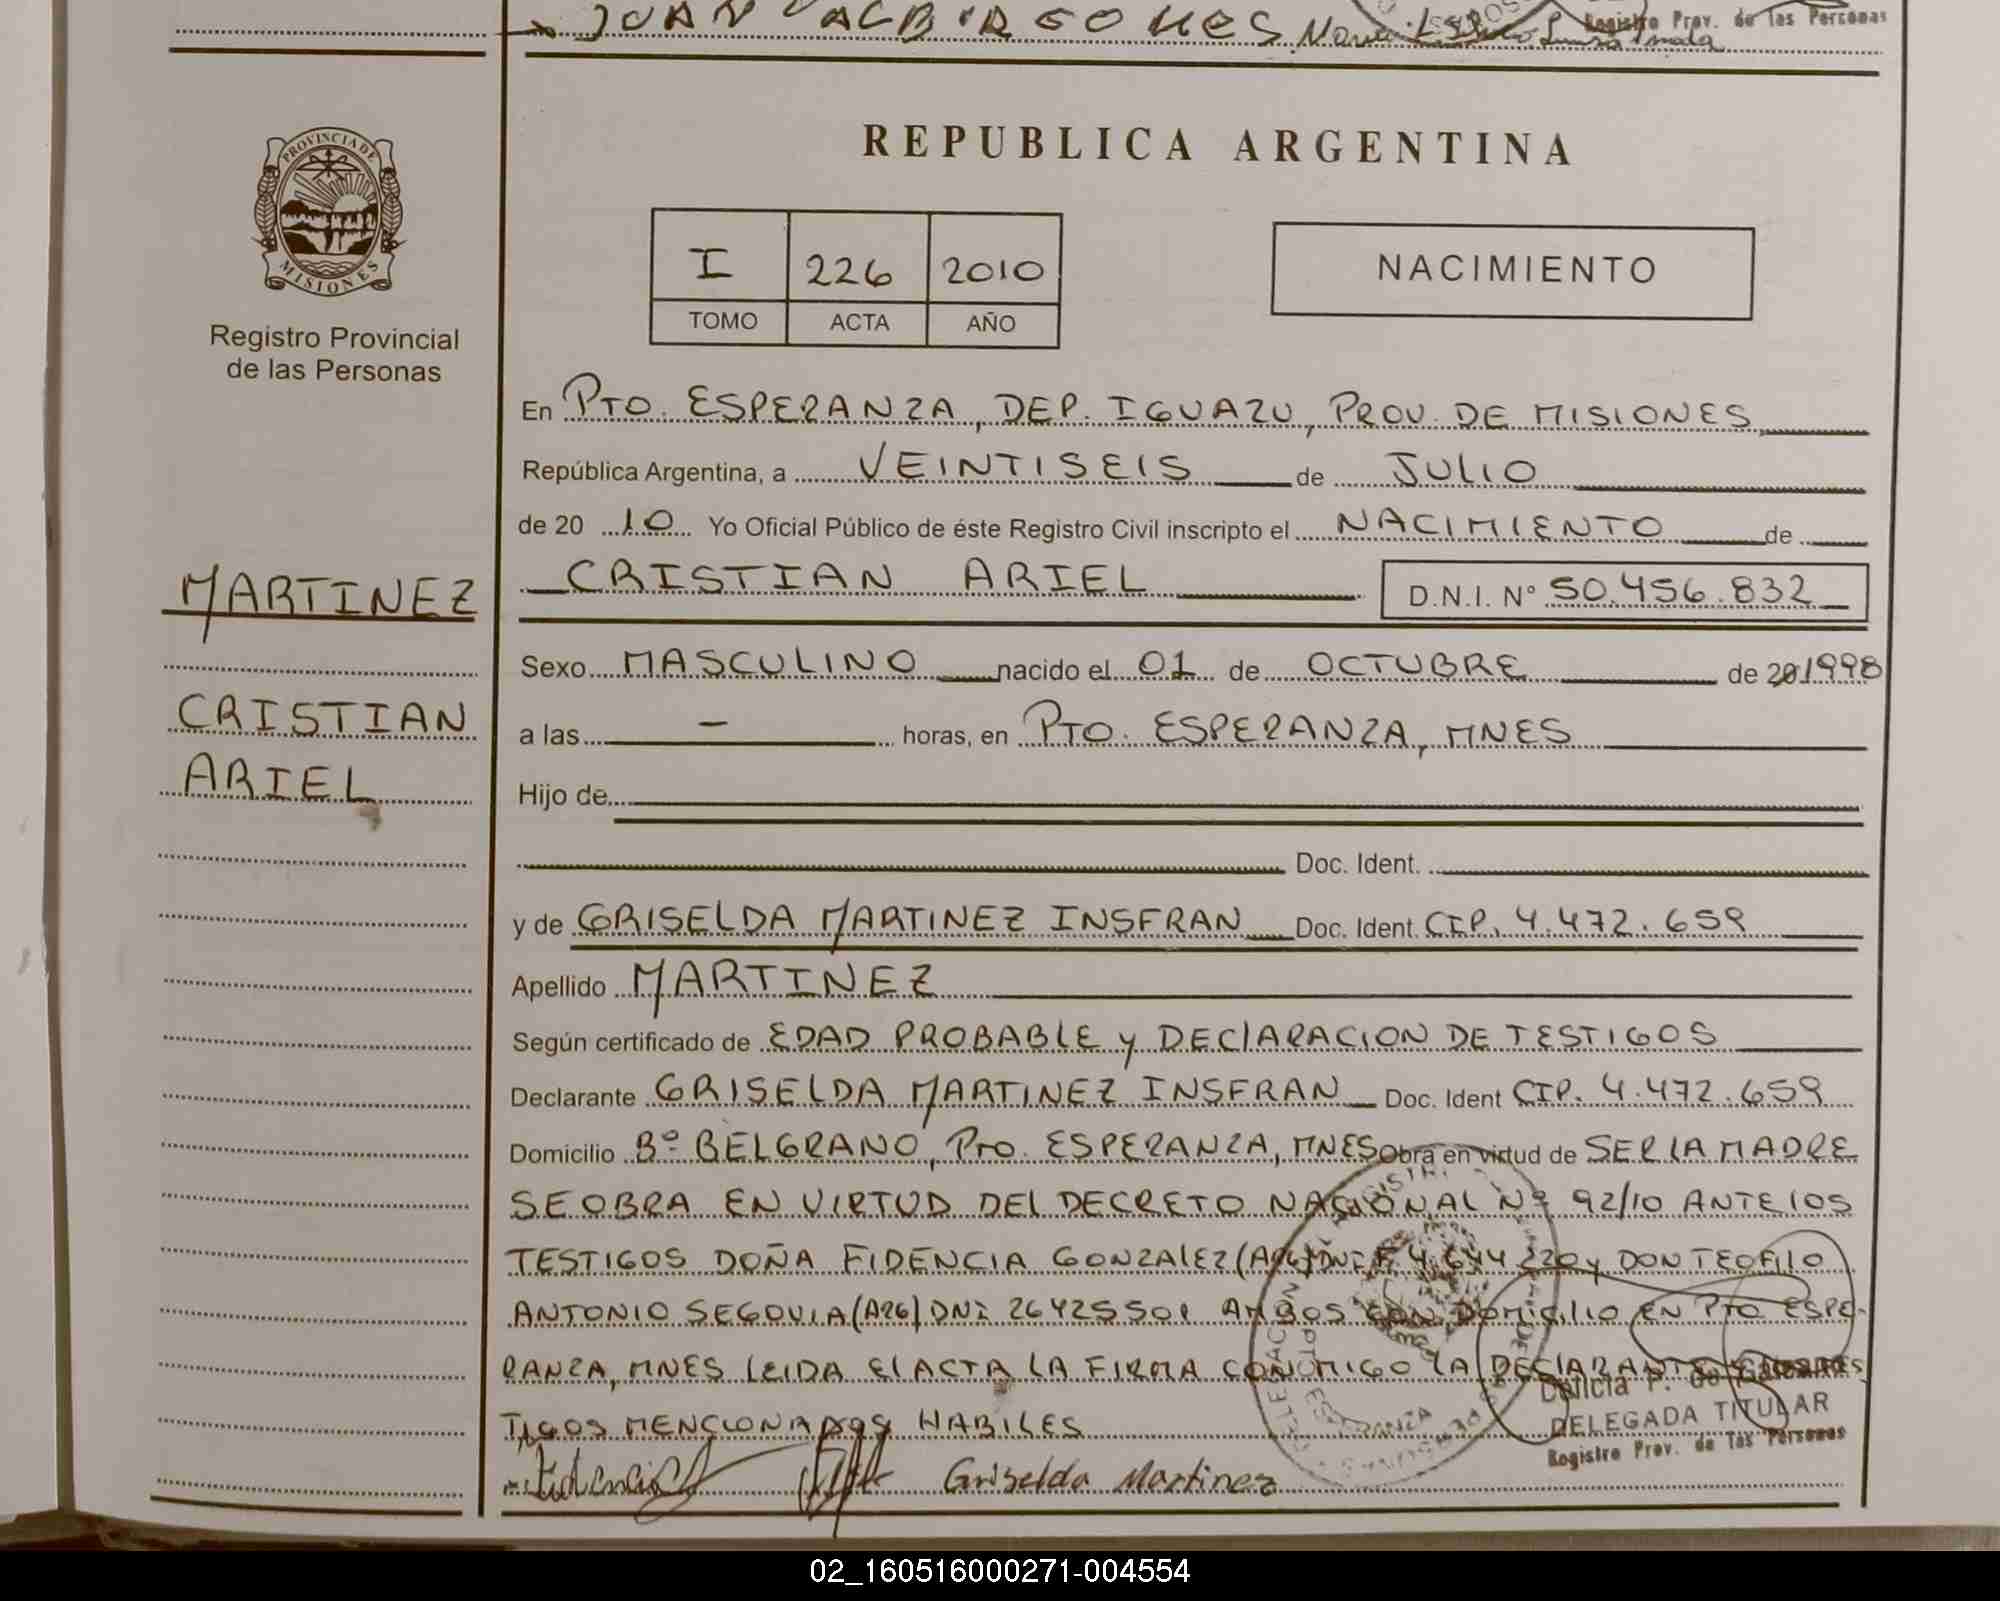 JUAN
Registro Prov. de las Personas
PROVINCIA DE
MISIONES
Registro Provincial
de las Personas
REPUBLICA ARGENTINA
I 226 2010
TOMO ACTA AÑO
NACIMIENTO
En PTO. ESPERANZA, DEP. IGUAZU, PROV. DE MISIONES
República Argentina, a VEINTISEIS de JULIO
de 20 10 Yo Oficial Público de éste Registro Civil inscripto el NACIMIENTO de
CRISTIAN ARIEL D.N.I. N° 50.456.832
MARTINEZ
CRISTIAN
ARIEL
Sexo MASCULINO nacido el 01 de OCTUBRE de 20 1998
a las — horas, en PTO. ESPERANZA, MNES
Hijo de
Doc. Ident.
y de GRISELDA MARTINEZ INSFRAN Doc. Ident. CIP. 4.472.659
Apellido MARTINEZ
Según certificado de EDAD PROBABLE y DECLARACION DE TESTIGOS
Declarante GRISELDA MARTINEZ INSFRAN Doc. Ident CIP. 4.472.659
Domicilio Bº BELGRANO, PTO. ESPERANZA, MNES Obra en virtud de SER LA MADRE
SE OBRA EN VIRTUD DEL DECRETO NACIONAL Nº 92/10 ANTE LOS
TESTIGOS DOÑA FIDENCIA GONZALEZ (ARG) DNI F 4.644.220 y DON TEOFILO
ANTONIO SEGOVIA (ARG) DNI 26425501 AMBOS CON DOMICILIO EN PTO ESPE-
RANZA, MNES LEIDA EL ACTA LA FIRMA CONMIGO LA DECLARANTE
TIGOS MENCIONADOS HABILES
Fidencia Griselda Martinez
DELEGADA TITULAR
Registro Prov. de las Personas
02_160516000271-004554